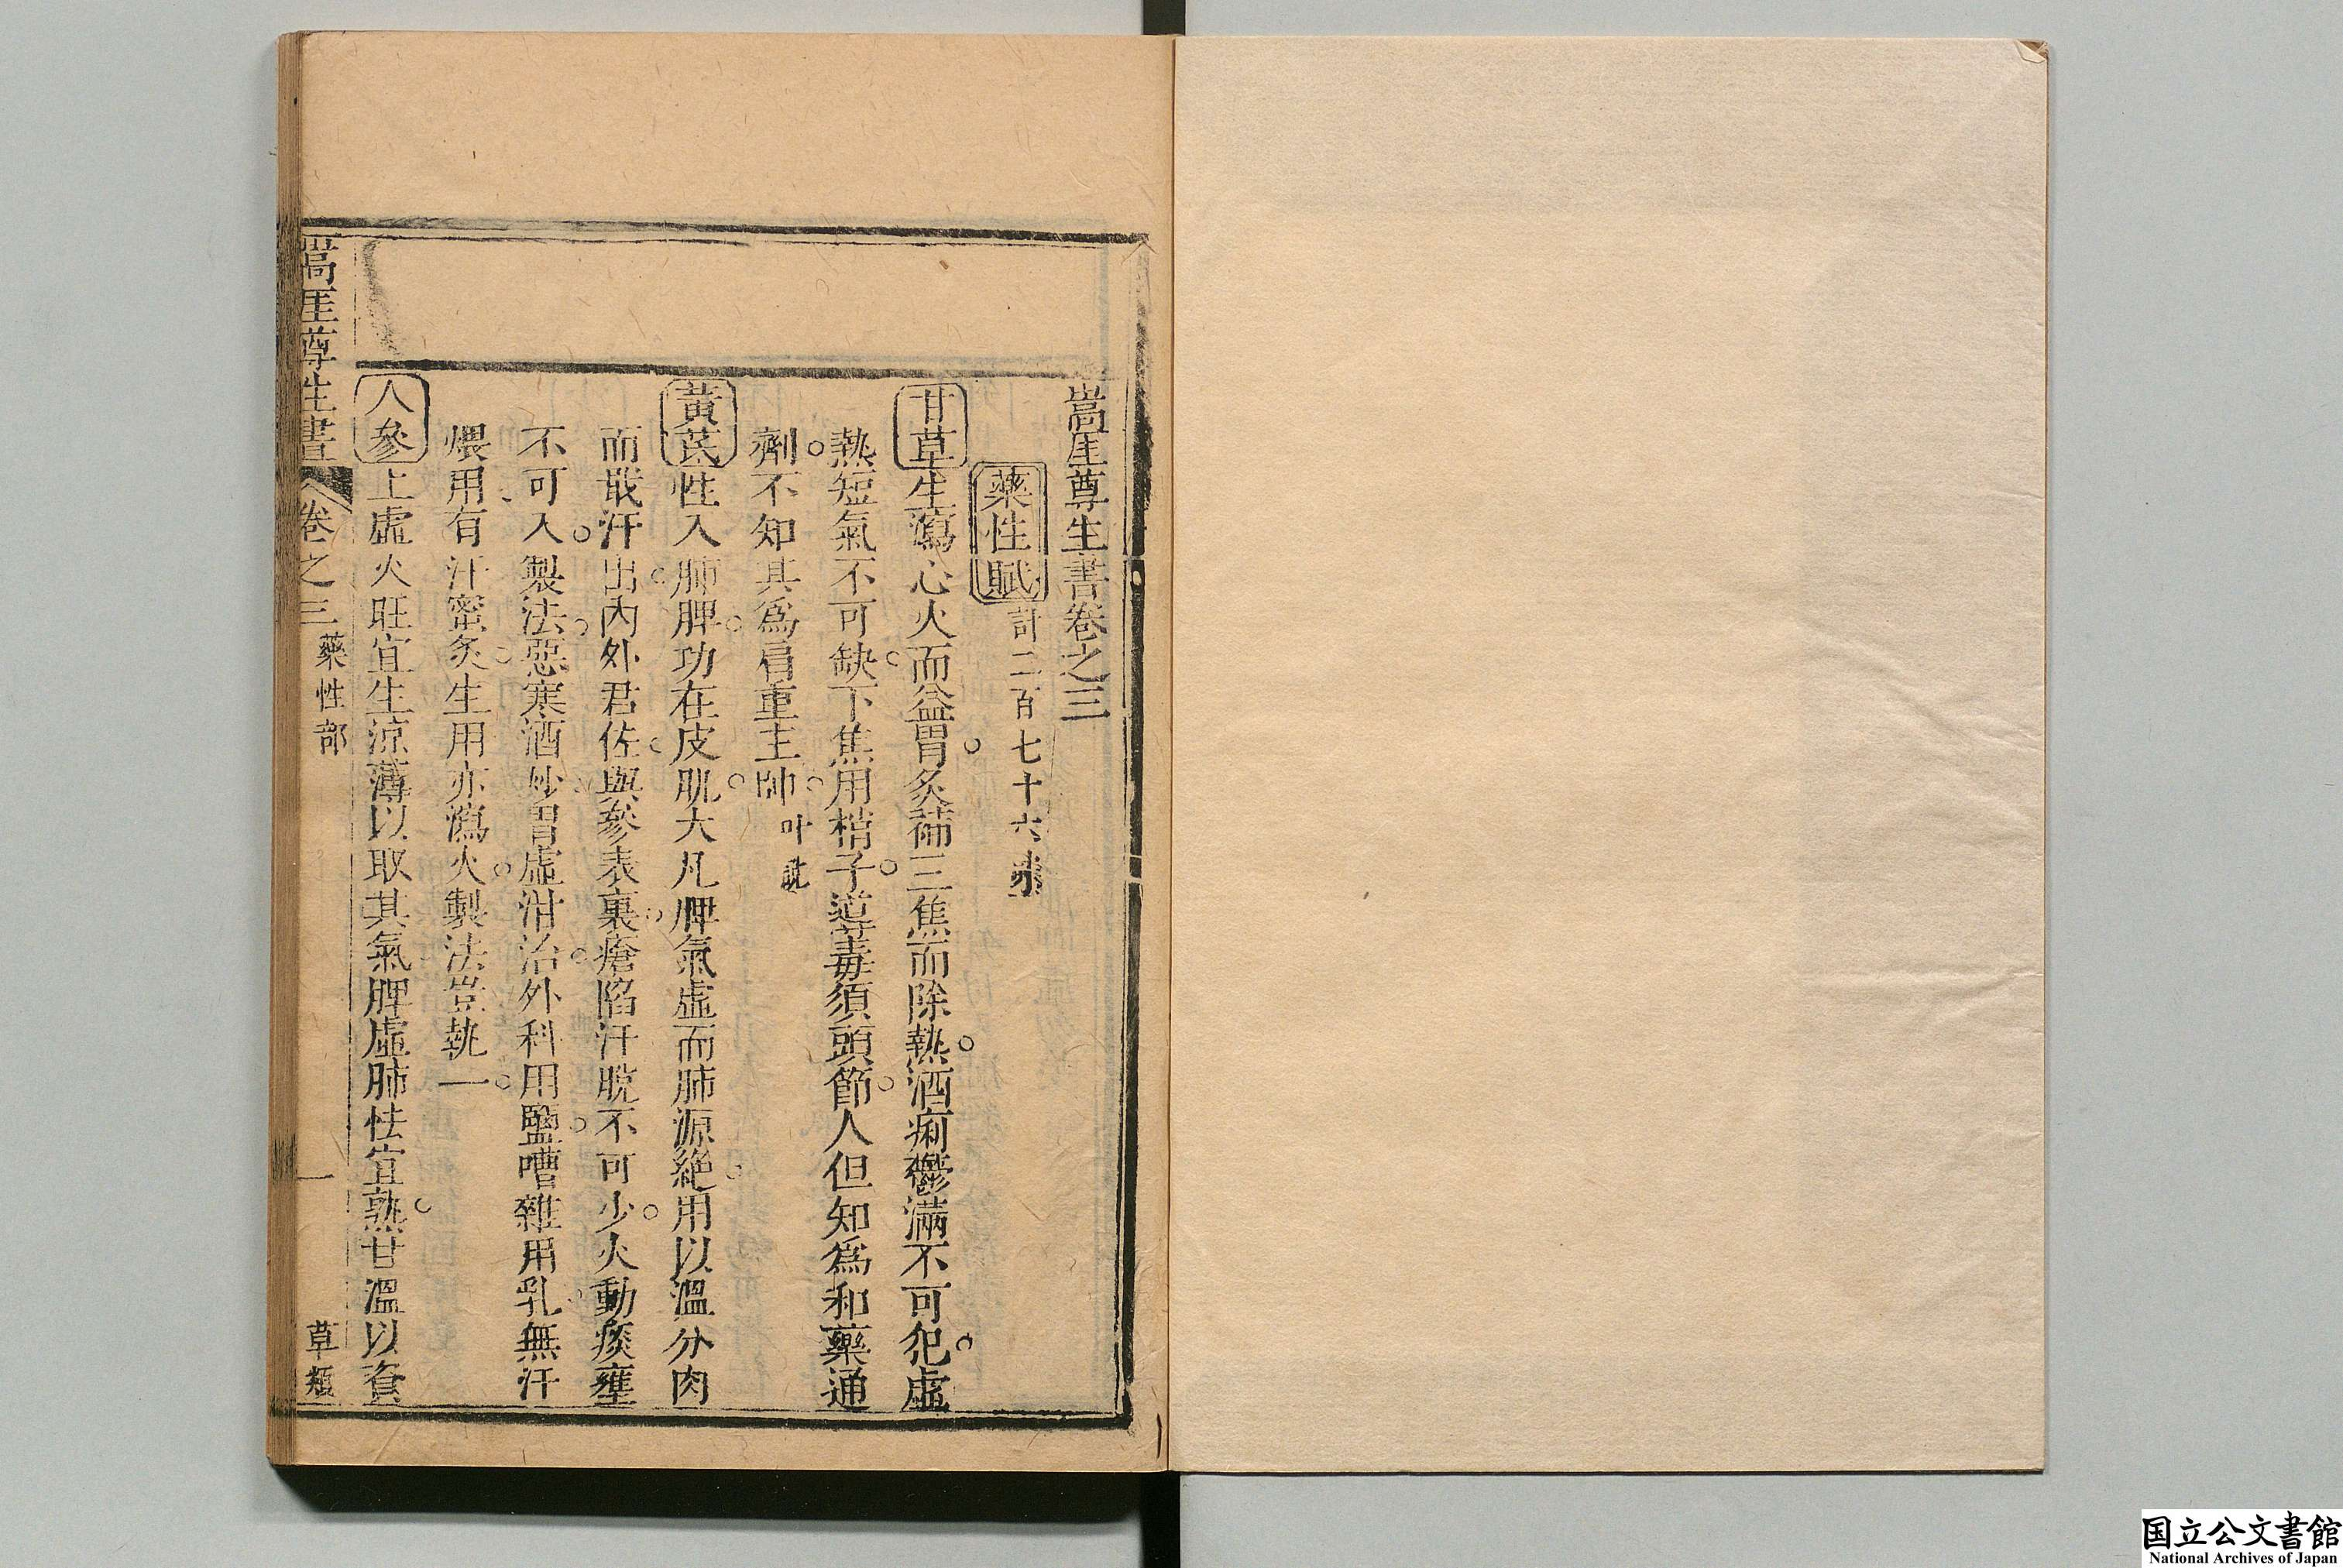 嵩厓尊生書卷之三
藥性賦 計二百七十六条
甘草 生瀉心火而益胃○炙補三焦而除熱○酒痢鬱滿不可犯○虛
熱短氣不可缺○下焦用梢子○道毒須頭節○人但知爲和藥通
劑○不知其爲肩重主帥○叶説
黃芪 性入肺脾○功在皮肌○大凡脾氣虛而肺源絕○用以溫分肉
而戢汗出○內外君佐○與參表裏○瘡陷汗脫不可少○火動痰壅
不可入○製法○惡寒酒炒○胃虛泔治○外科用鹽○嘈雜用乳○無汗
煨用有汗蜜炙○生用亦瀉火○製法豈執一○
人參 上虛火旺宜生涼薄以取其氣脾虛肺怯宜熟○甘溫以資
嵩厓尊生書 卷之三 藥性部 一 草類
国立公文書館
National Archives of Japan